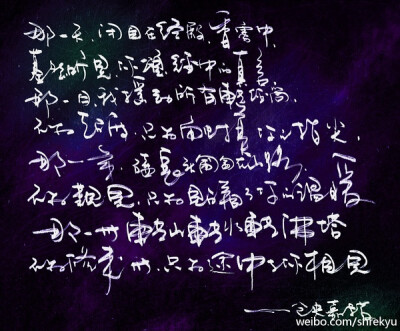 那一天,闭目在经殿,香雾中,
蓦然听见,你诵经中的真言
那一月我摇动所有转经筒,
不为超度,只为触摸你的指尖,
那一年,磕长头匍匐在山路,
不为觐见,只为贴着你的温暖
那一世转山转水转佛塔
不为修来世,只为途中与你相见
——仓央嘉措
weibo.com/shrekyu